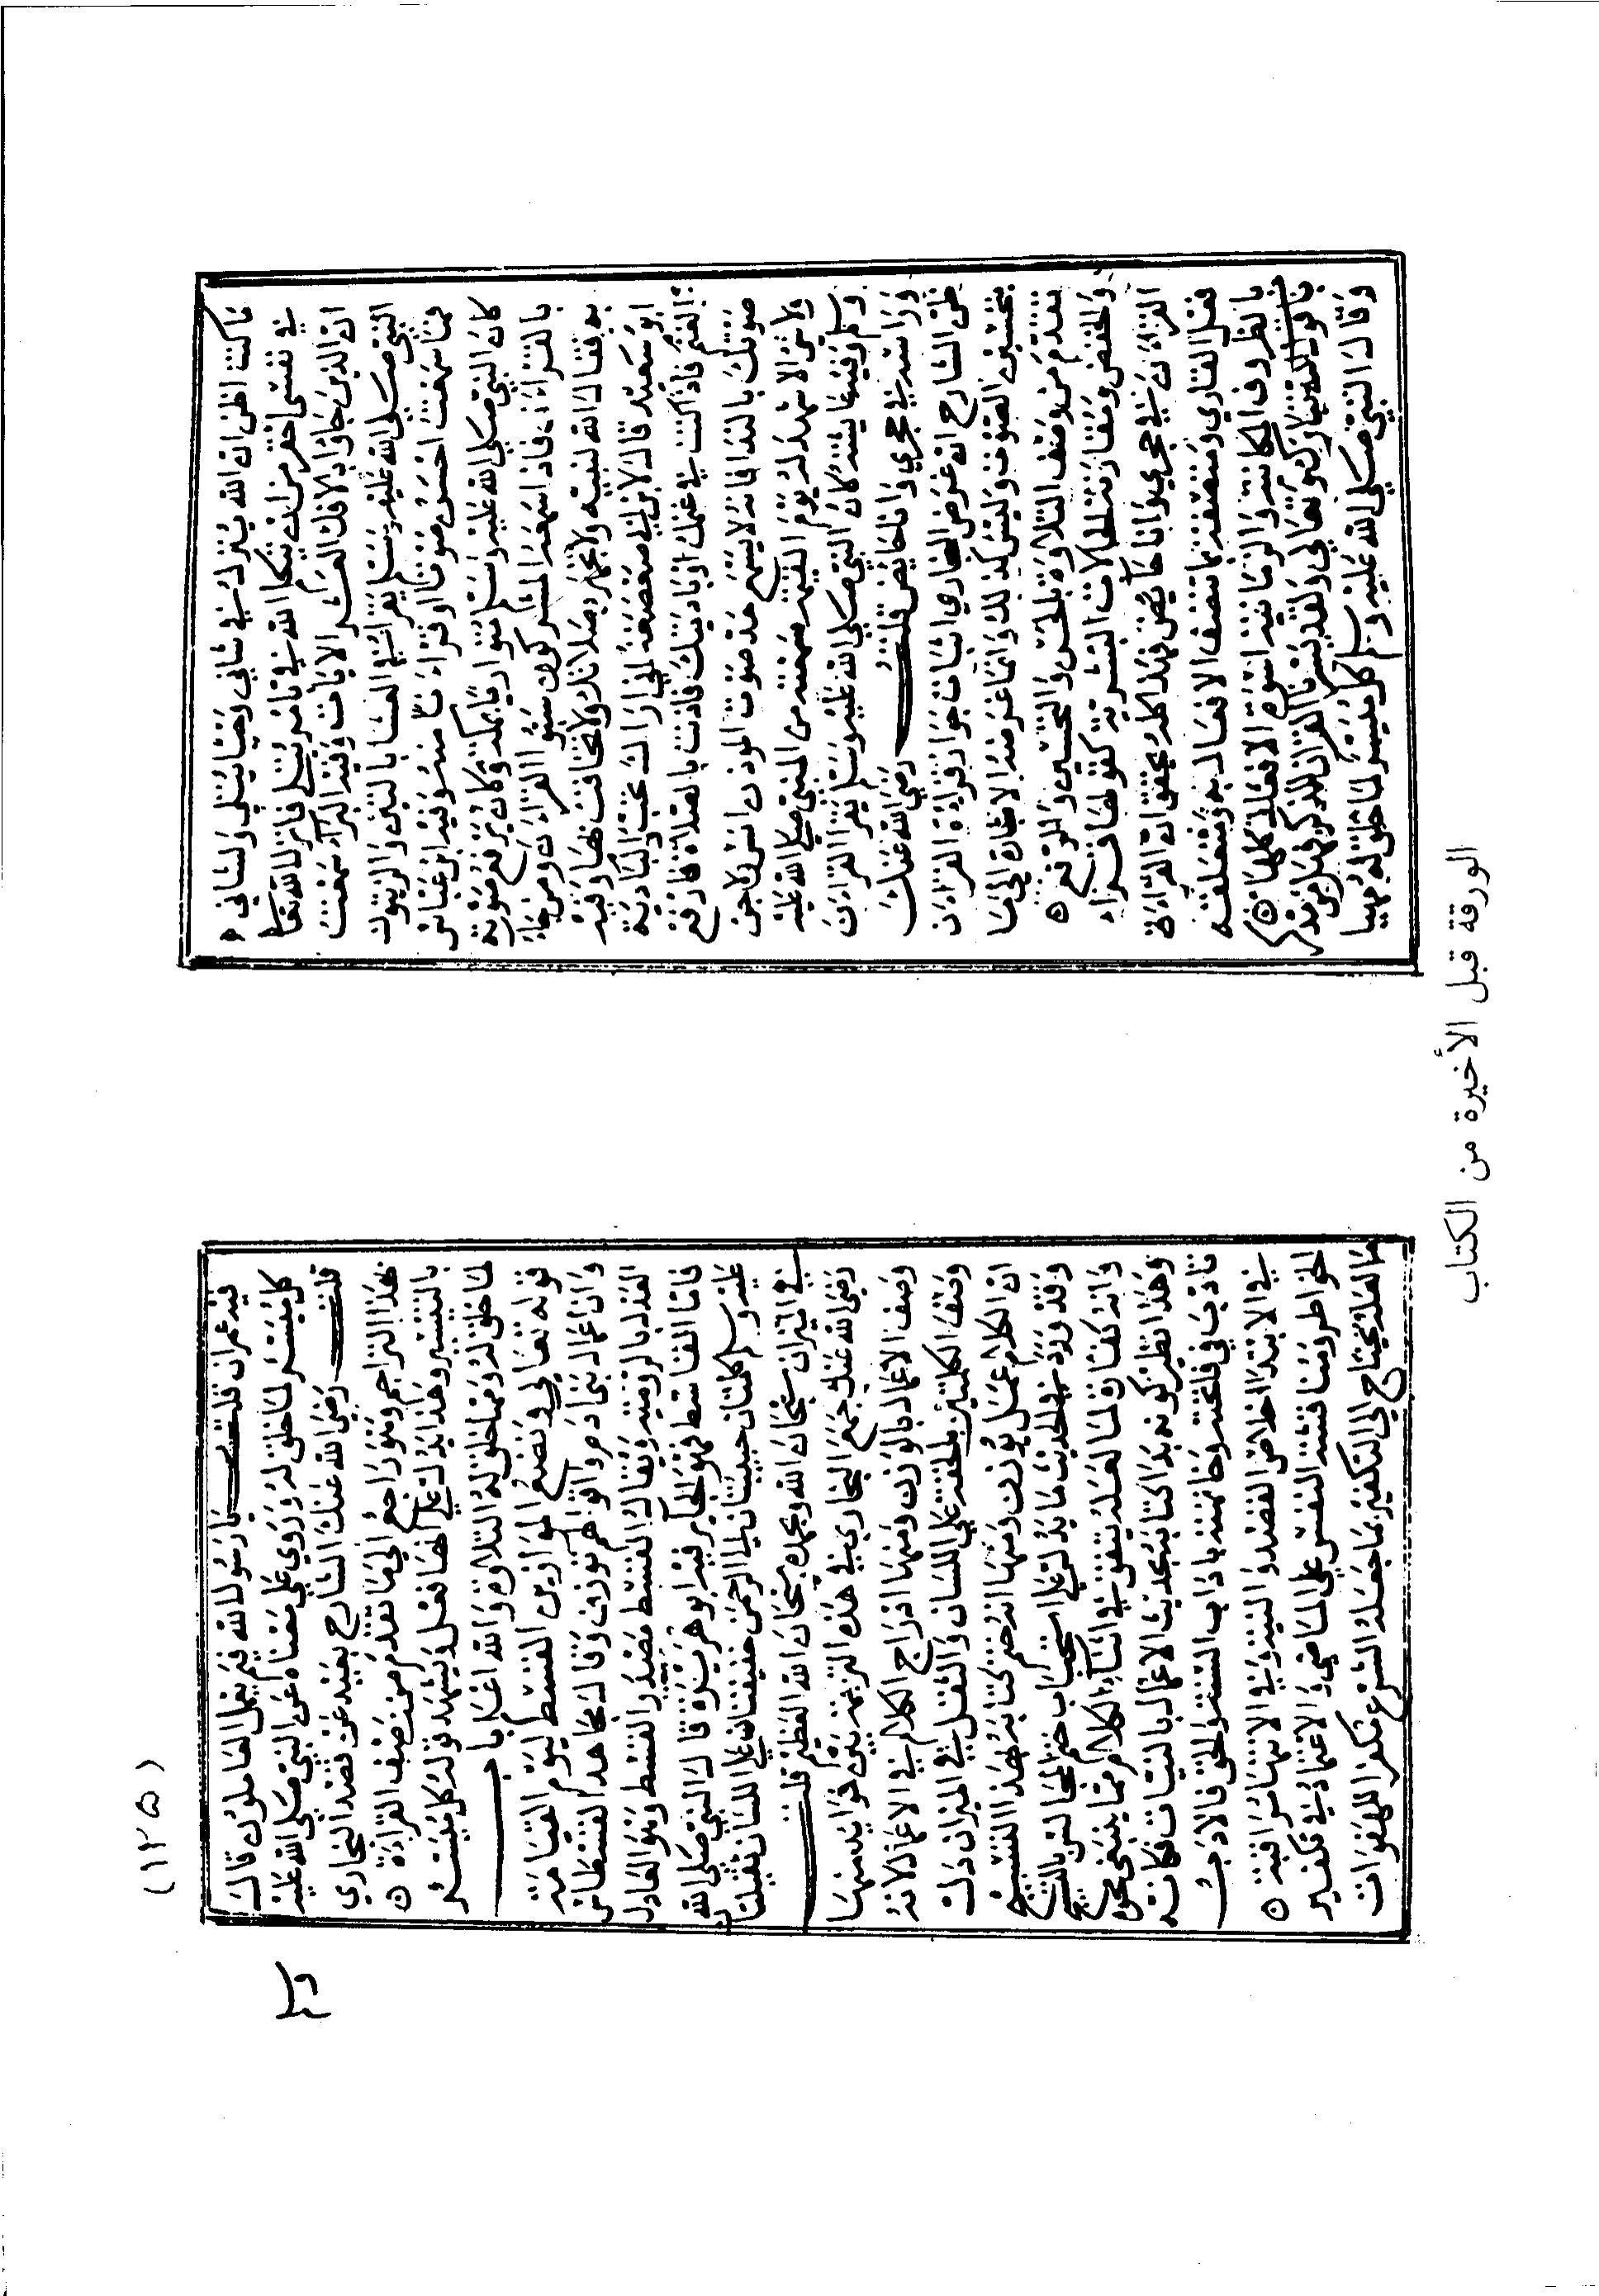 ما كنت اظن ان الله ينزل في شاني وحيا يتلى ولشاني
في نفسي احقر من ان يتكلم الله في بامر يتلى فانزل الله تعالى
ان الذين جاؤا بالافك العشر الايات وفيه البراء سمعت
النبي صلى الله عليه وسلم يقرا في العشا بالتين والزيتون
فما سمعت احسن صوتا او قراءة منه وفيه ابن عباس
كان النبي صلى الله عليه وسلم متواريا بمكة وكان يرفع صوته
بالقراءة فاذا سمعه المشركون سبوا القراءن ومن جاء
به فقال الله لنبيه ولا تجهر بصلاتك ولا تخافت بها وفيه
ابو سعيد قال لابن ابي صعصعة اني اراك تحب البادية
والغنم فاذا كنت في غنمك او باديتك فاذنت بالصلاة فارفع
صوتك بالندا فانه لا يسمع مدى صوت الموذن انس ولا جن
ولا شي الا شهد له يوم القيمة سمعته من النبي صلى الله عليه
وسلم وفيه عايشة كان النبي صلى الله عليه وسلم يقرا القراءن
وراسه في حجري وانا حايض قلت رضي الله عنك
ظن الشارح ان غرض البخاري اثبات جواز قراءة القراءن
بتحسين الصوت وليس كذلك وانما غرضه الاشارة الى ما
تقدم من وصف التلاوة بالحسن والتحسين والرفع
والخفض ومقارنته الحالات البشرية كقولها قراء
القراءن في حجري وانا حايض فهذا كله يحقق ان القراءة
فعل القاري ومتصفة بما تتصف الافعال به ومتعلقة
بالظروف المكانية والزمانية اسوة الافعال كلها
باب قول الله تبارك وتعالى ولقد يسرنا القران للذكر فهل من مدكر
وقال النبي صلى الله عليه وسلم كل ميسر لما خلق له مهيا
(١٢٥)
فيه عمران قلت يا رسول الله فيم يعمل العاملون قال
كل ميسر لما خلق له وروي علي معناه عن النبي صلى الله عليه
قلت رضي الله عنك الشارح بعيد عن قصد البخاري
بهذا التراجم وهو راجع الى ما تقدم من وصف القراءة
بالتيسير وهذا يدل على انها فعل ويشهد قوله كل ميسر
لما خلق له ومما خلق له التلاوة والله اعلم باب
قوله تعالى ونضع الموازين القسط ليوم القيامة
وان اعمال بني ادم واقوالهم توزن وقال مجاهد القسطاس
العدل بالرومية ويقال القسط مصدر المقسط وهو العادل
فاما القاسط فهو الجاير فيه ابو هريرة قال النبي صلى الله
عليه وسلم كلمتان حبيبتان الى الرحمن خفيفتان على اللسان ثقيلتان
في الميزان سبحان الله وبحمده سبحان الله العظيم قلت
رضي الله عنك جمع البخاري في هذه الترجمة بين فوايد منها
وصف الاعمال بالوزن ومنها ادراج الكلام في الاعمال لانه
وصف الكلمتين بالخفة على اللسان والثقل في الميزان دل
ان الكلام عمل يوزن ومنها انه ختم كتابه بهذا التسبيح
وقد ورد في الحديث ما يدل على استحباب ختم المجالس بالتسبيح
وانه كفارة لما لعله يتفق في اثناء الكلام مما ينبغي محوه
وهذا نظير كونه بدا كتابه بحديث الاعمال بالنيات فكانه
تادب في فاتحته وخاتمته باداب السنة والحق فالادب
في الابتدا اخلاص القصد والنية وفي الانتها مراقبة
الخواطر ومناقشة النفس على الماضي والاعتماد في تكفير
ما لعله يحتاج الى التكفير بما جعله الشرع مكفرا للهفوات
الورقة قبل الأخيرة من الكتاب